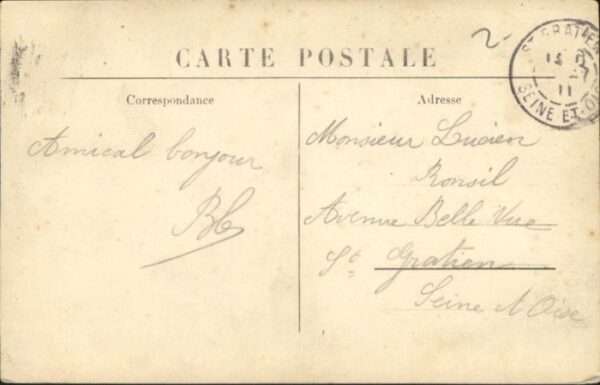 CARTE POSTALE
Correspondance
Amical bonjour
Adresse
Monsieur Lucien
Ronsil
Avenue Belle Vue
St Gratien
Seine et Oise
2
ST GRATIEN
11
SEINE-ET-OISE